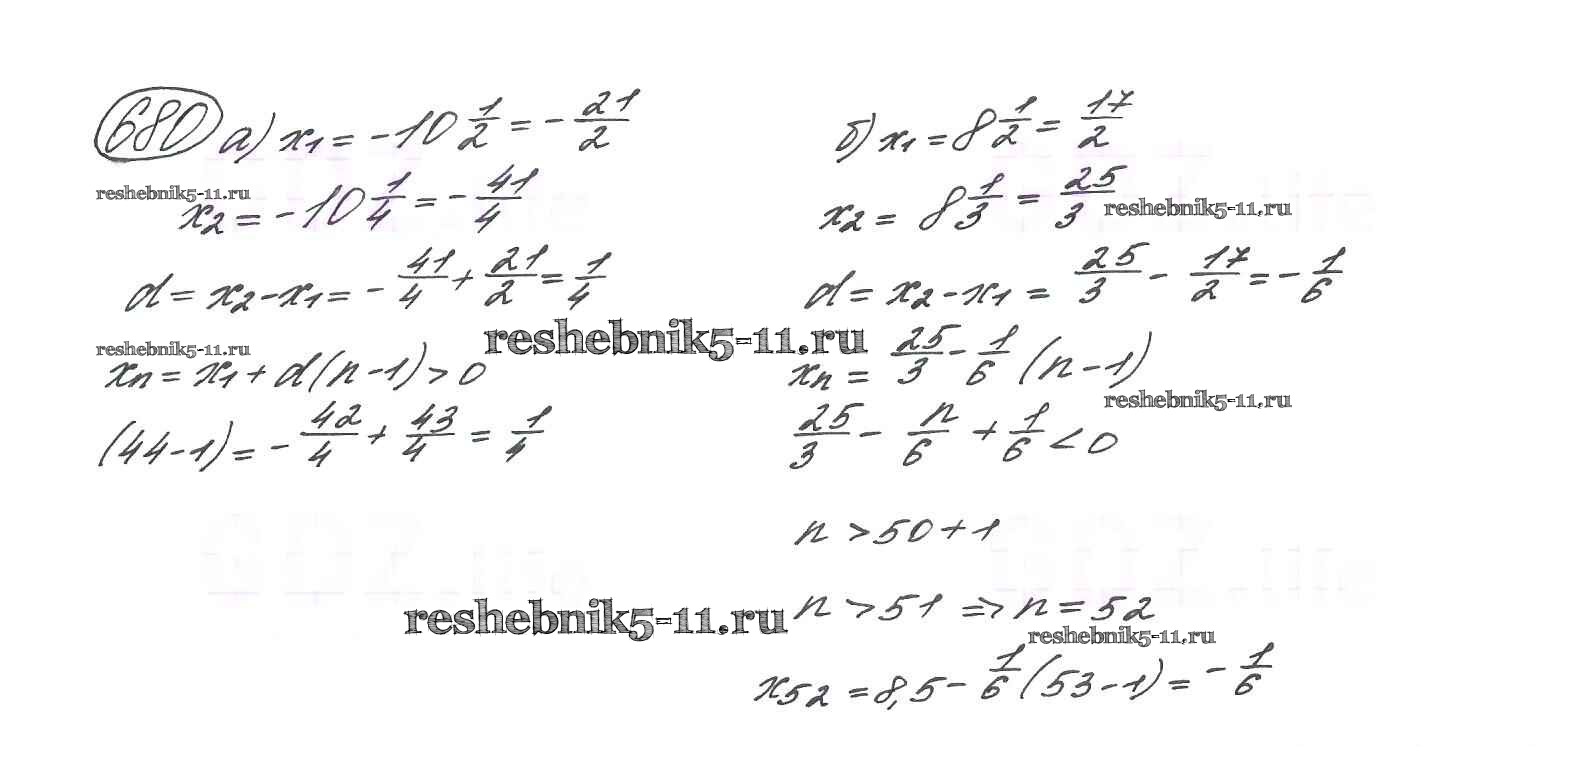 680 а) x₁ = -10 1/2 = - 21/2
reshebnik5-11.ru
x₂ = -10 1/4 = - 41/4
d = x₂ - x₁ = - 41/4 + 21/2 = 1/4
reshebnik5-11.ru
xₙ = x₁ + d(n-1) > 0
(44-1) = - 42/4 + 43/4 = 1/4
б) x₁ = 8 1/2 = 17/2
x₂ = 8 1/3 = 25/3
reshebnik5-11.ru
d = x₂ - x₁ = 25/3 - 17/2 = - 1/6
reshebnik5-11.ru
xₙ = 25/3 - 1/6 (n-1)
reshebnik5-11.ru
25/3 - n/6 + 1/6 < 0
n > 50 + 1
reshebnik5-11.ru
n > 51 => n = 52
reshebnik5-11.ru
x₅₂ = 8,5 - 1/6 (53-1) = - 1/6